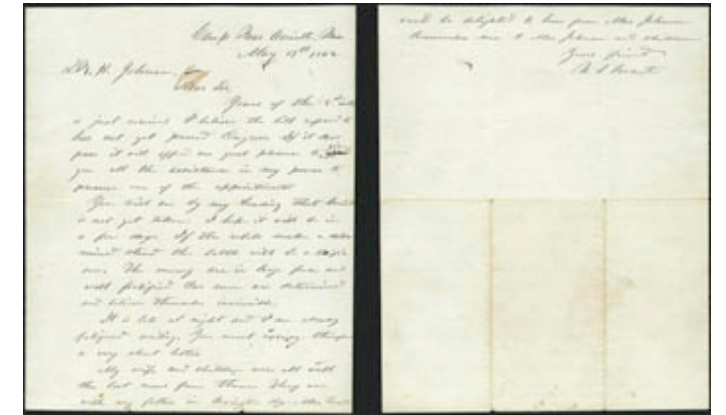 Camp Near Corinth, Miss
May 13th 1862
H. Johnson,
Dear Sir
Yours of the 2d
is just received. I believe the bill
has not yet passed Congress. If it does
pass it will afford me great pleasure to
you all the assistance in my power to
one of the appointments
You will see by my heading that Corinth
is not yet taken. I hope it will be in
a few days. If the rebels make a
stand the battle will be a
one. The enemy are in large force and
well fortified. Our men are determined
and believe themselves invincible.
It is late at night and I am
fatigued writing. You must
a very short letter
My wife and children were all well
the last news from them. They are
with my father in Covington Ky. Mrs
would be delighted to hear from Mrs Johnson
Remember me to Mrs Johnson and children
Your friend
U. S. Grant